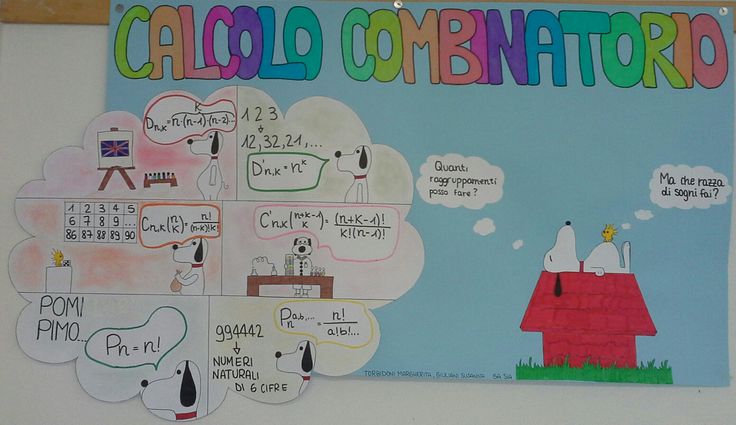 CALCOLO COMBINATORIO
K
Dn,k = n·(n-1)·(n-2)...
1 2 3
↓
12, 32, 21, ...
D'n,k = n^k
1 2 3 4 5
6 7 8 9 ...
86 87 88 89 90
Cn,k (n k) = n! / (n-k)! k!
C'n,k (n+k-1 k) = (n+k-1)! / k!(n-1)!
POMI
PIMO...
Pn = n!
994442
↓
NUMERI
NATURALI
DI 6 CIFRE
Pn^a,b,... = n! / a!b!...
Quanti
raggruppamenti
posso fare?
Ma che razza
di sogni fai?
TORBIDONI MARGHERITA, GIULIANI SUSANNA 5A SIA